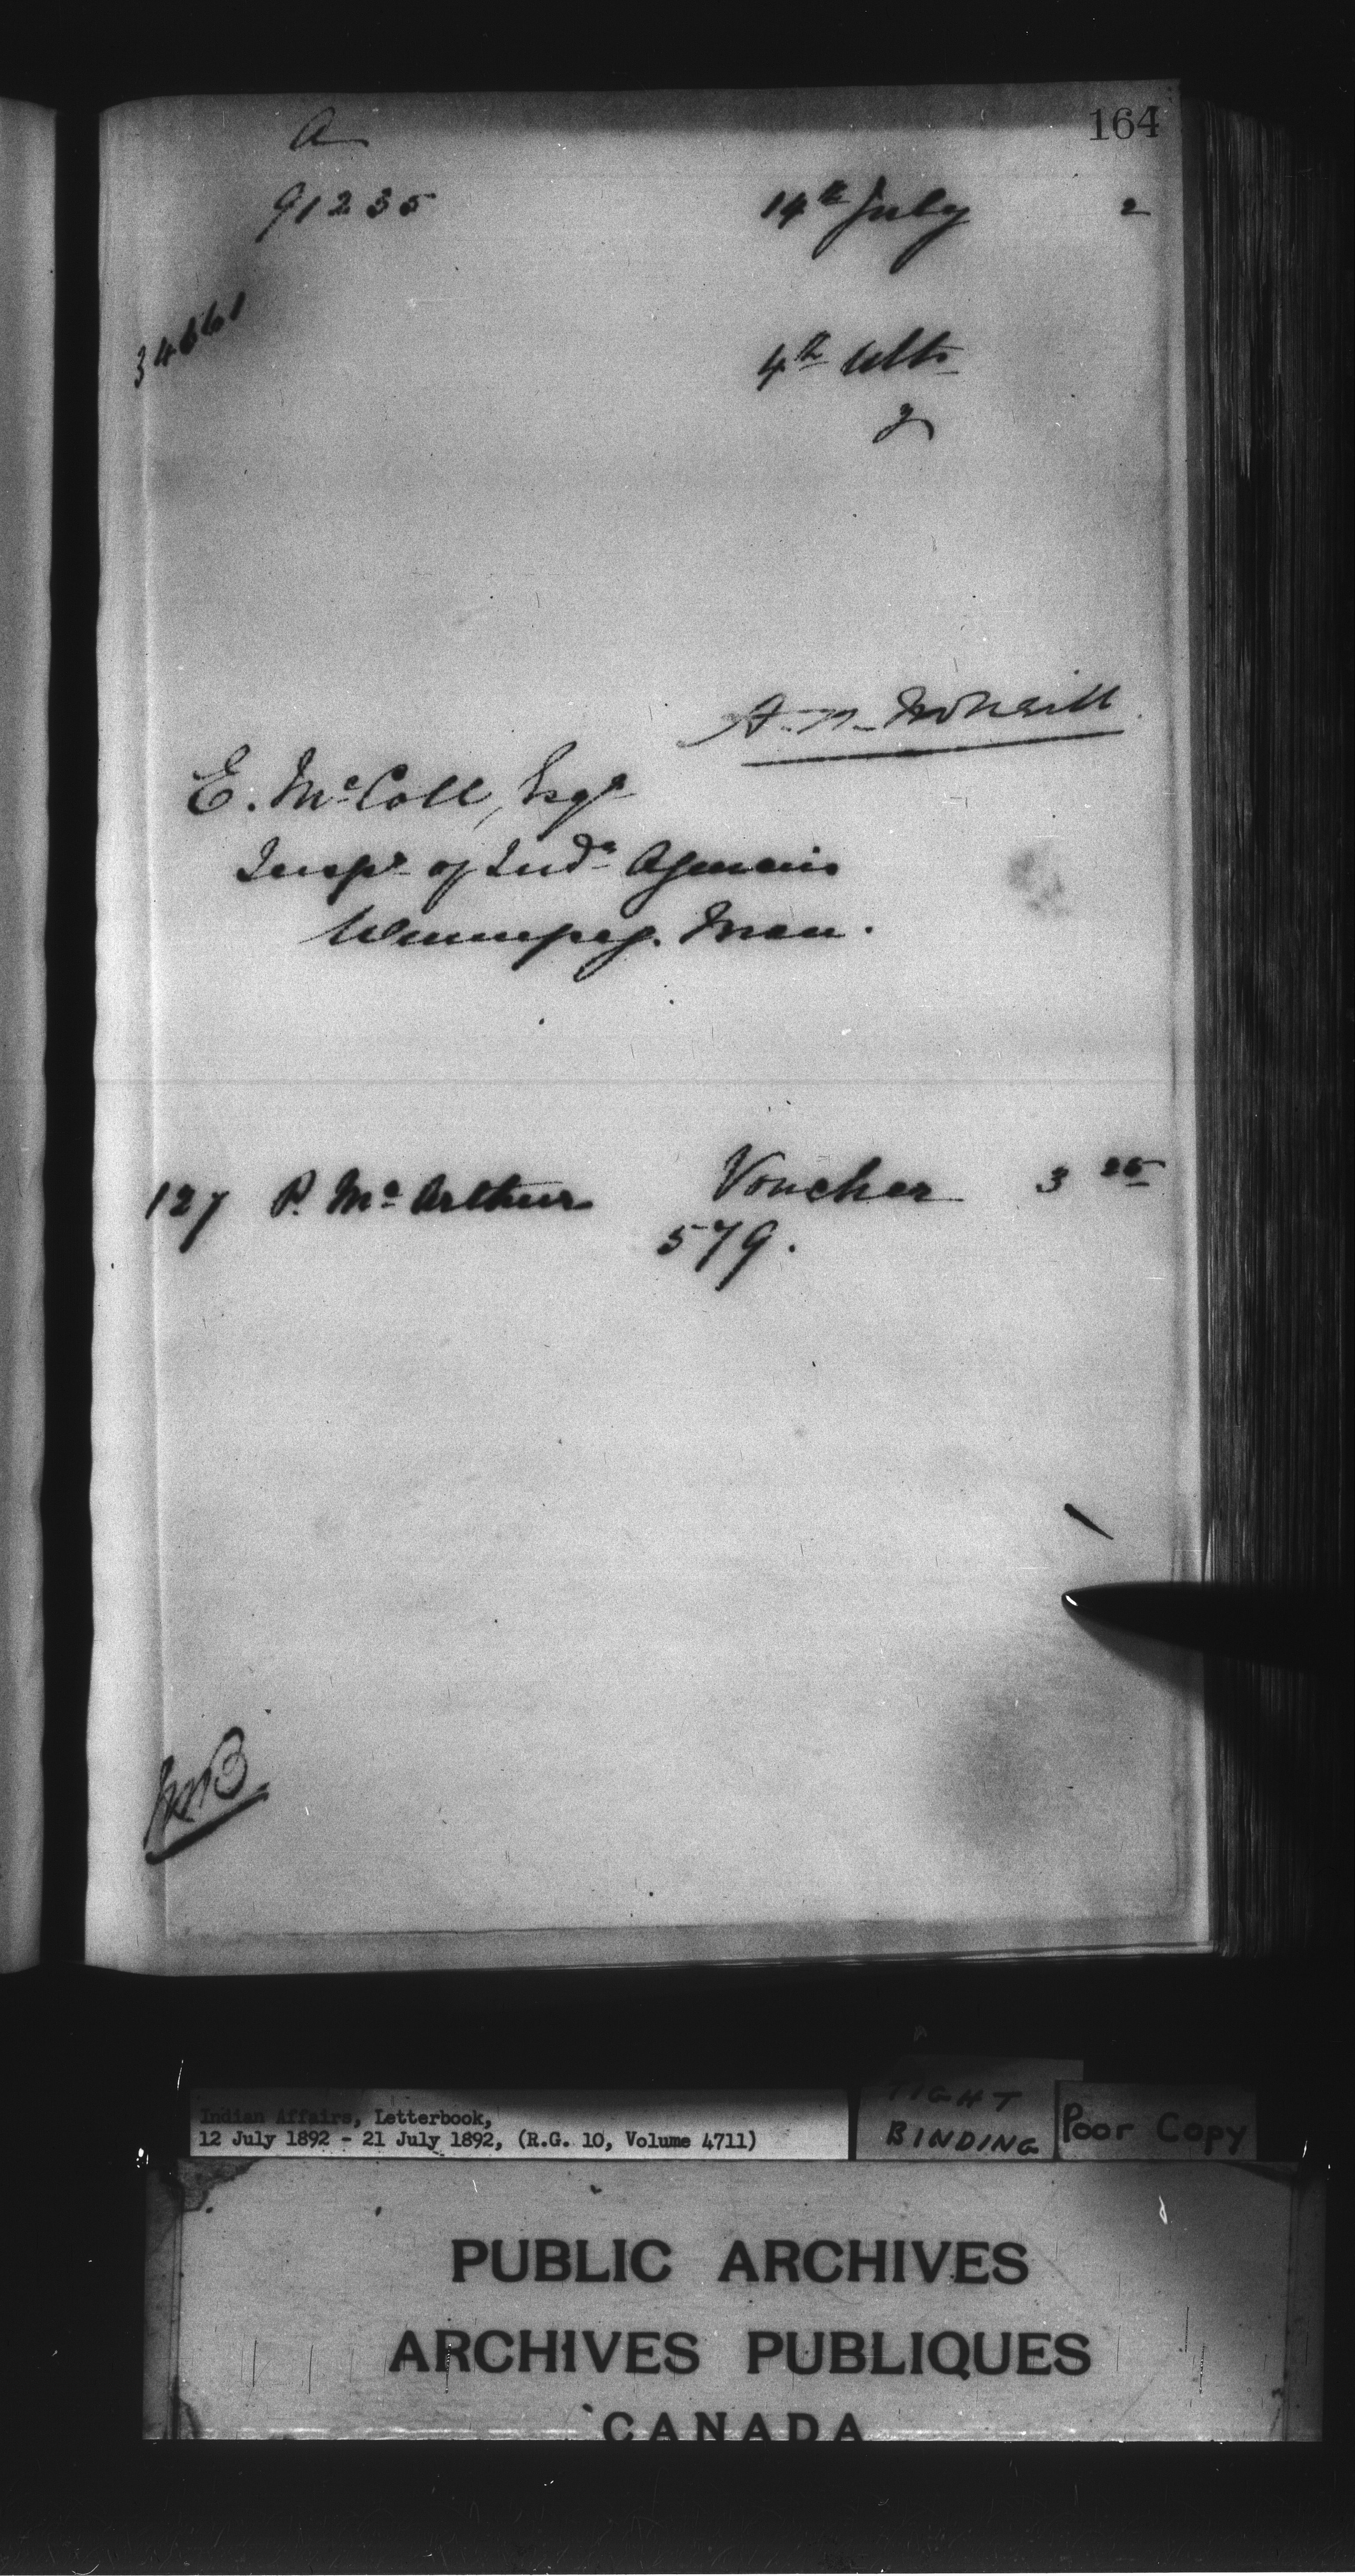 164
A
91235
14th July 2
34661
4th Ulto
A. N. McNeill
E. McColl, Esqr
Inspr of Inds Agencies
Winnipeg. Man.
127 P. McArthur Voucher 3 25
579.
Indian Affairs, Letterbook,
12 July 1892 - 21 July 1892, (R.G. 10, Volume 4711)
TIGHT
BINDING
Poor Copy
PUBLIC ARCHIVES
ARCHIVES PUBLIQUES
CANADA